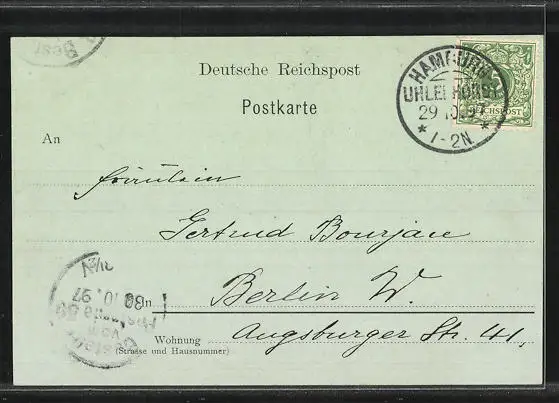 Best
Deutsche Reichspost
Postkarte
HAMBURG
UHLENHORST
29 10 97
* 1-2N. *
REICHSPOST
An
Fräulein
Gertrud Bourjau
in
Berlin W.
Wohnung
(Strasse und Hausnummer)
Augsburger Str. 41,
Bestellt
vom
Postamte 50
30.10.97